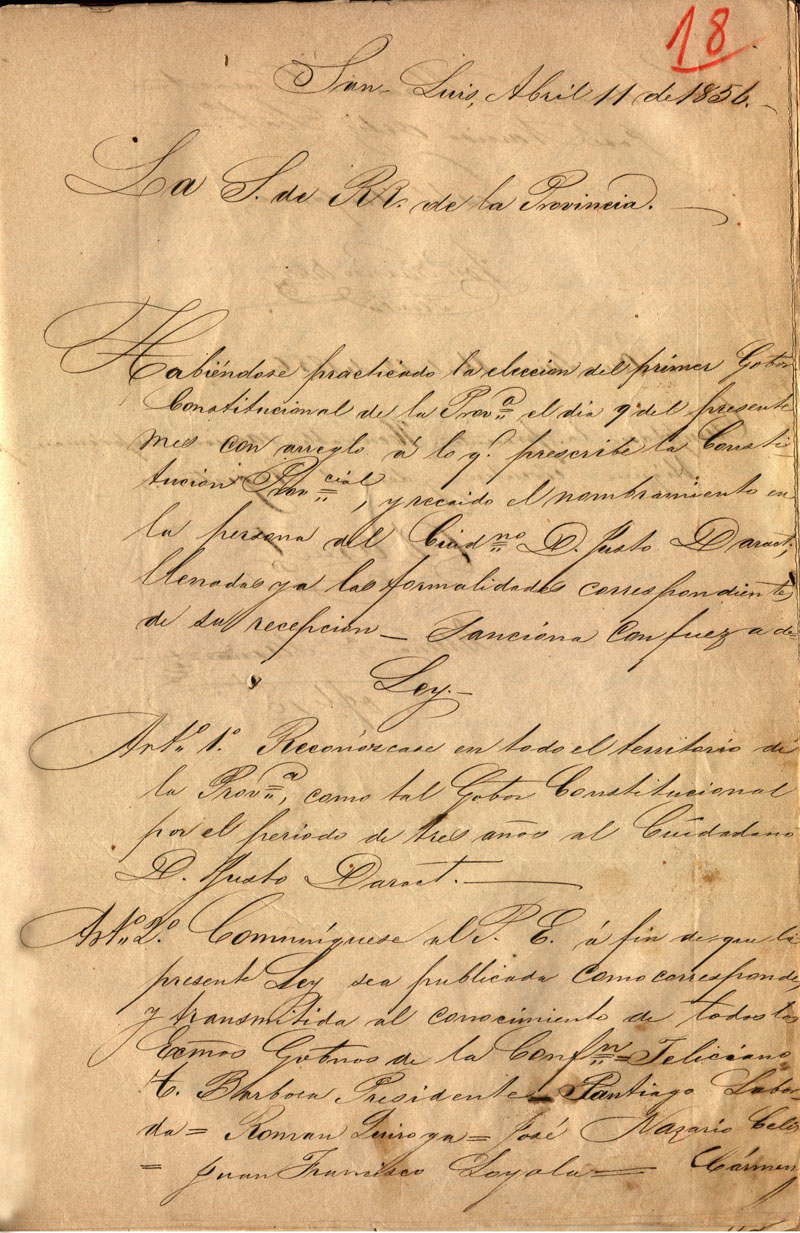 18
San Luis, Abril 11 de 1856.
La S. de RR. de la Provincia.
Habiéndose practicado la eleccion del primer Gobor
Constitucional de la Prov.ª el dia 9 del presente
mes con arreglo á lo q.e prescribe la Consti-
tucion Prov.cial, y recaido el nombramiento en
la persona del Ciudno D. Justo Daract,
llenadas ya las formalidades correspondientes
de su recepcion — Sanciona con fueza de=
Ley.—
Art.º 1.º Reconózcase en todo el territorio de
la Prov.ª, como tal Gobor Constitucional
por el periodo de tres años al Ciudadano
D. Justo Daract.—
Art.º 2.º Comuníquese al P. E. á fin de que la
presente Ley sea publicada como corresponde,
y transmitida al conocimiento de todos los
Exmos Gobnos de la Confn = Feliciano
T. Barbosa Presidente — Santiago Labo-
da = Roman Quiroga = José Nazario Celis
= Juan Francisco Loyola = Cármen